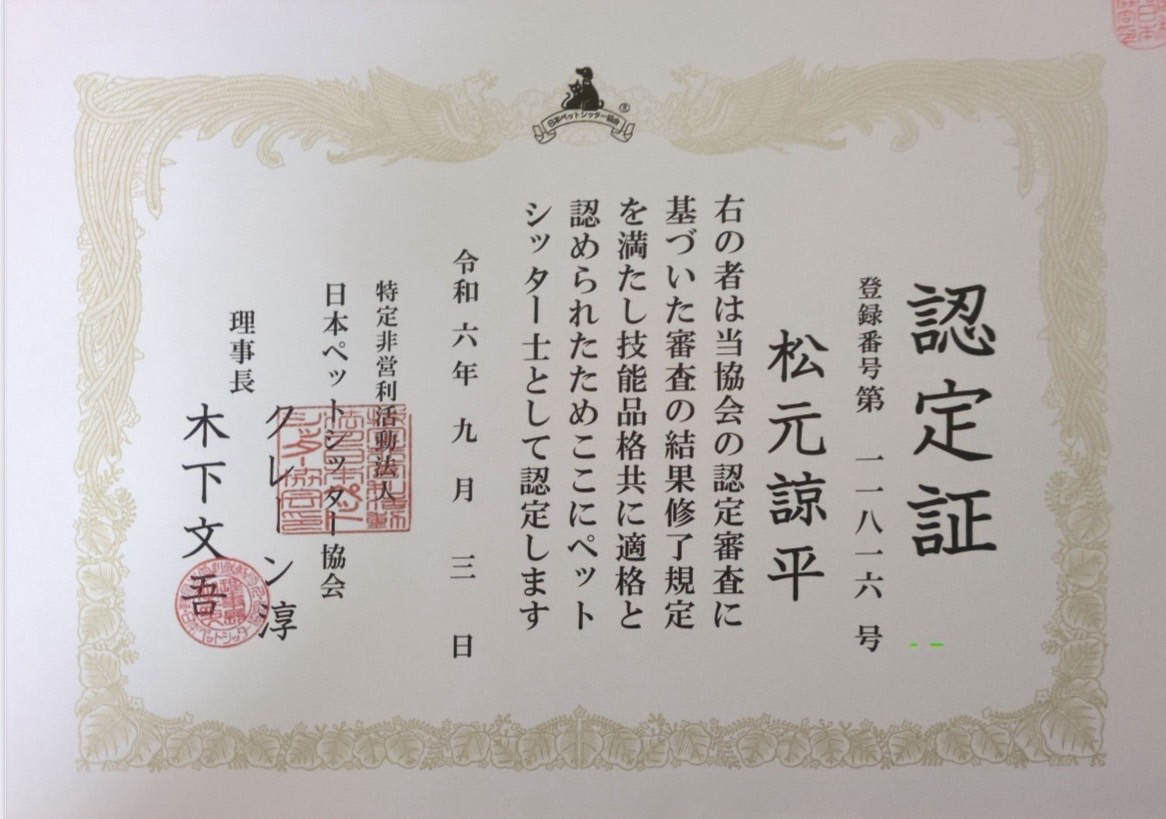 日本ペットシッター協会
®
認定証
登録番号第 一一八一六 号
松元諒平
右の者は当協会の認定審査に
基づいた審査の結果修了規定
を満たし技能品格共に適格と
認められたためここにペット
シッター士として認定します
令和 六年 九月 三日
特定非営利活動法人
日本ペットシッター協会
クレーン淳
理事長
木下文吾